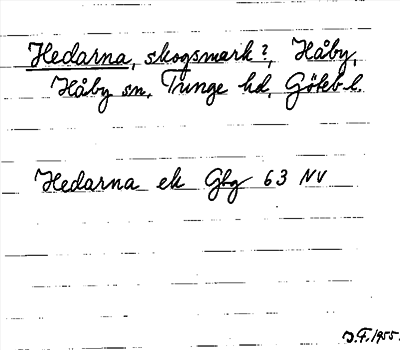 Hedarna, skogsmark?, Håby,
Håby sn. Tunge hd, Göteb. l.
Hedarna ek Gbg 63 NV
J.F. 1955.